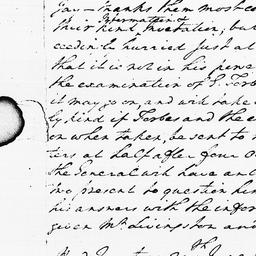 Jay – thanks them most co
Information &
their kind Invitation, but
ceedingly hurried just at
that it is not in his power
the examination of G. Forb
it may go on, and will take
ly kind if Forbes and the e
on when taken, be sent to
ters at half after four O
the General will have an
ing present to question him
his answers with the infor
given Mr. Livingston and